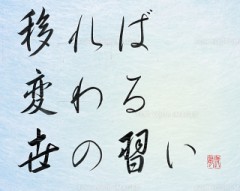 移れば
変わる
世の習い